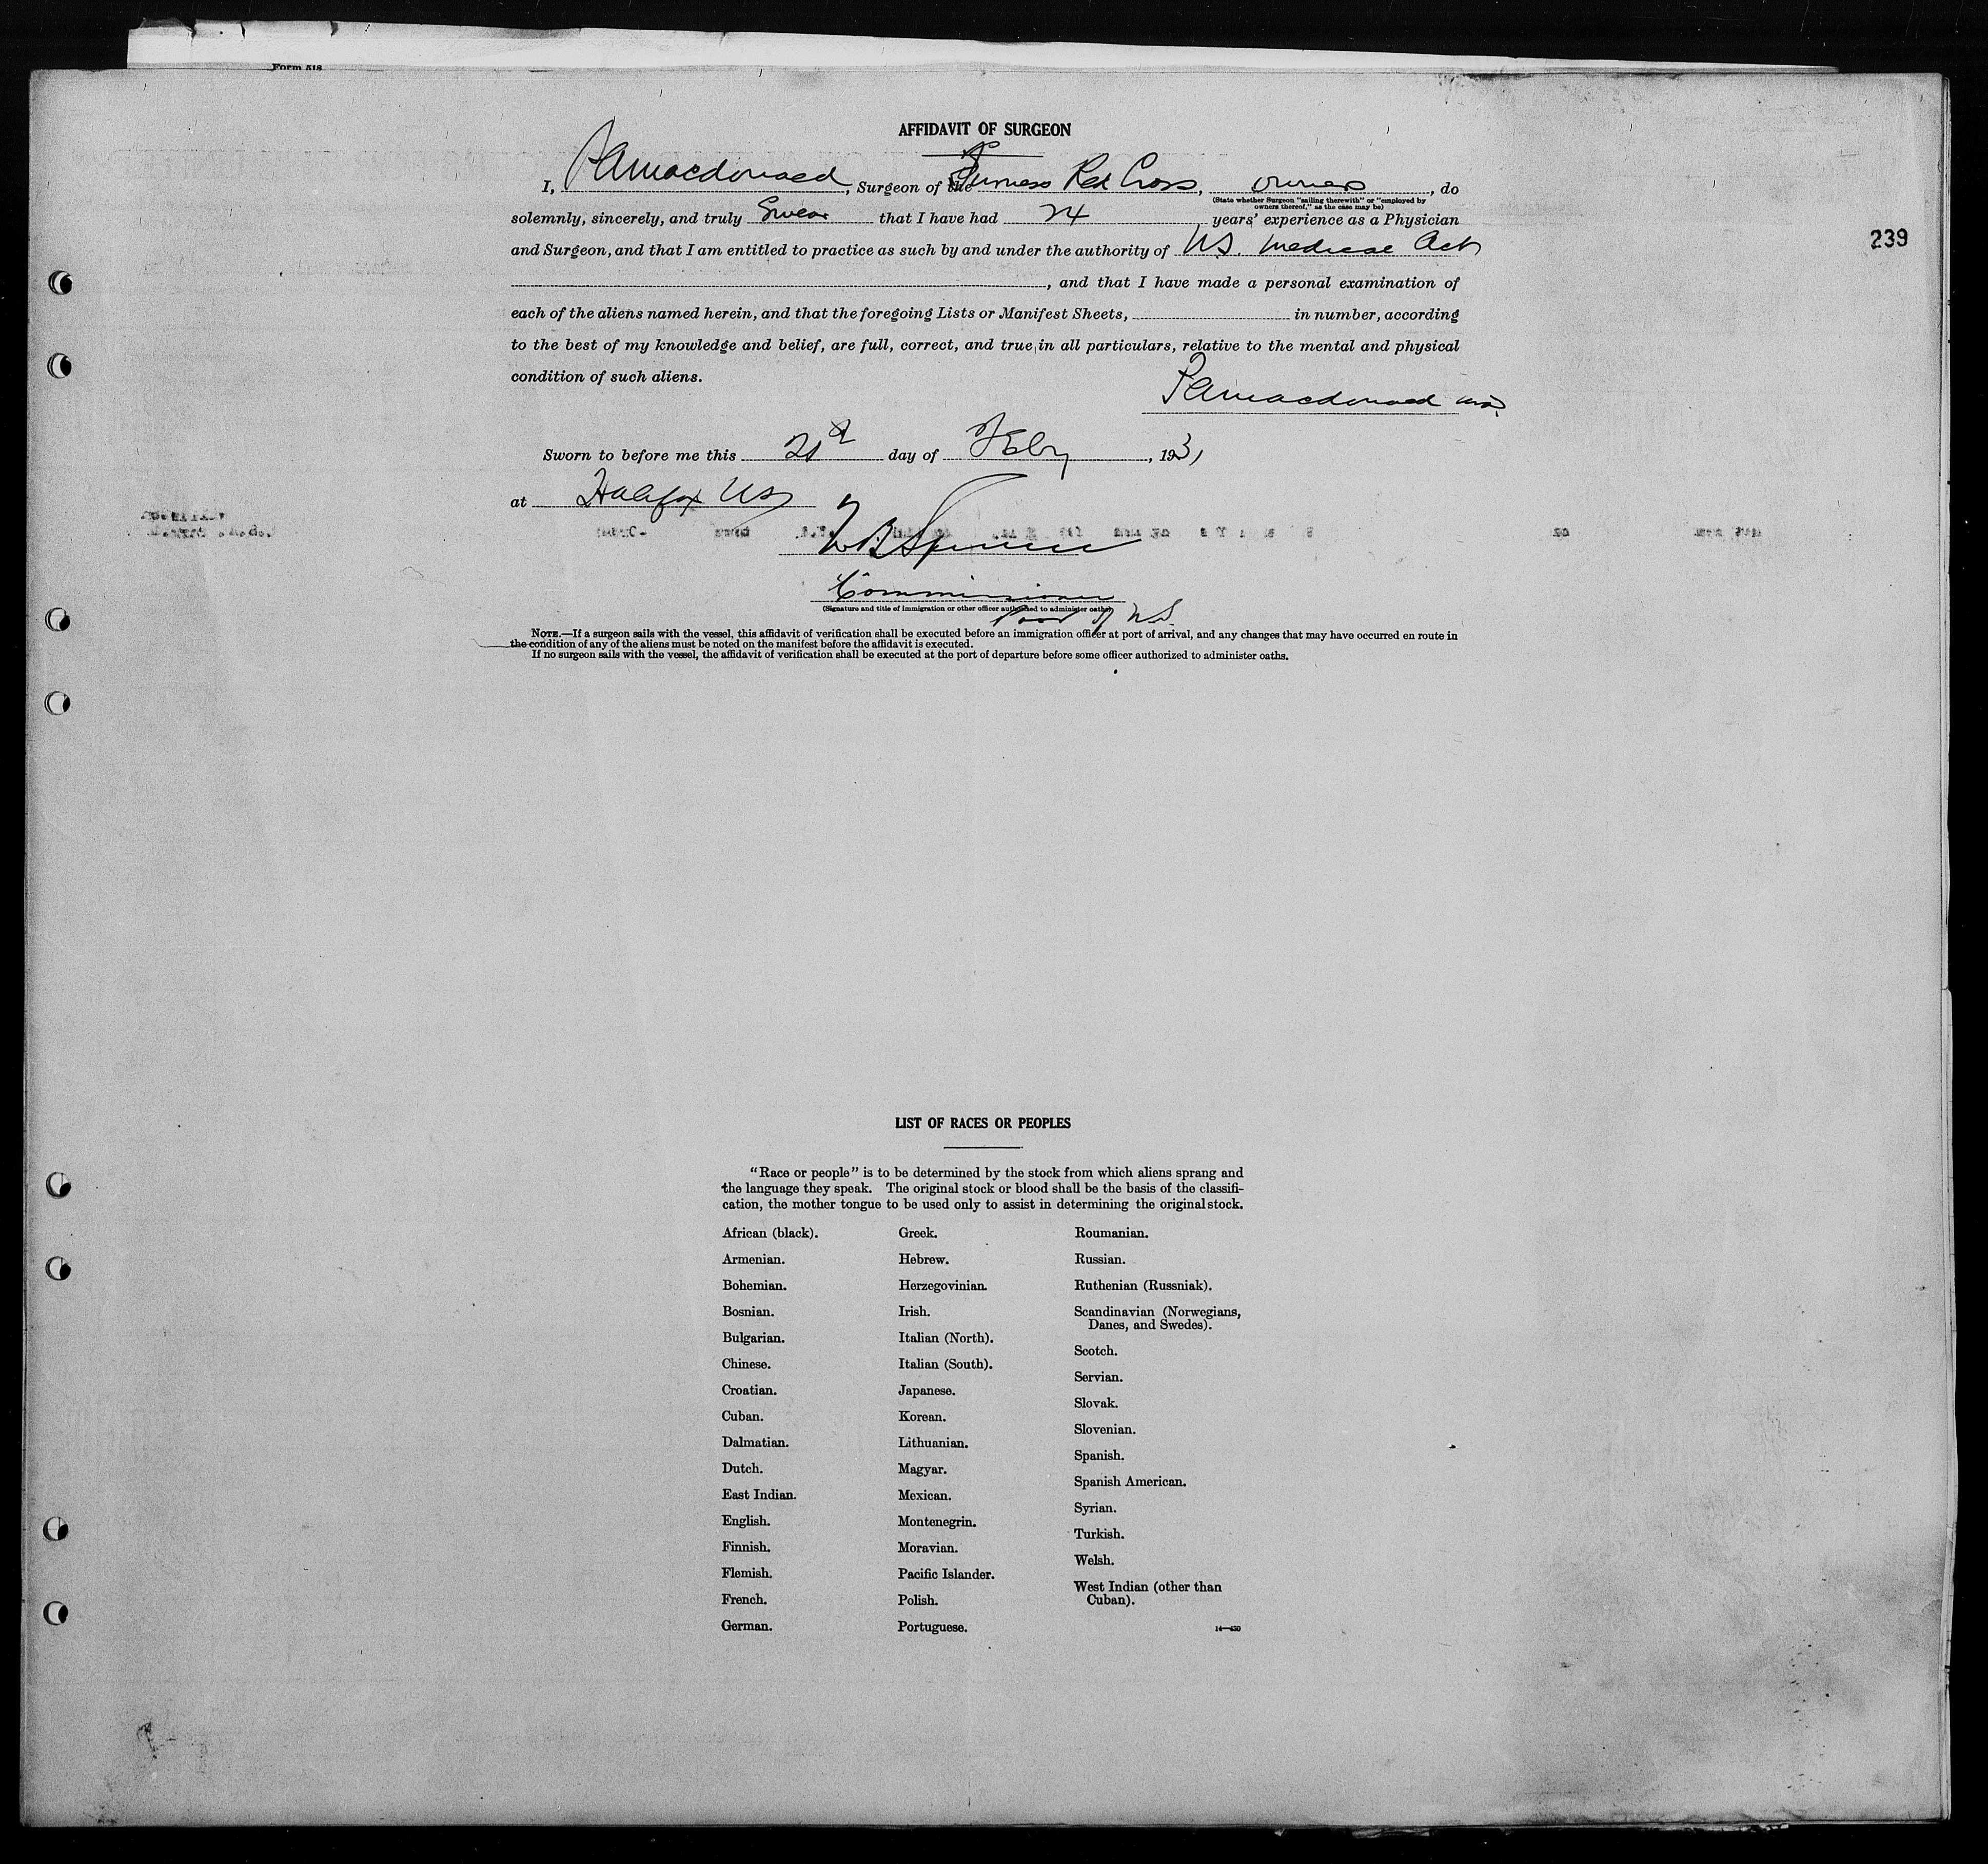 Form 518
AFFIDAVIT OF SURGEON
I, PAMacdonald, Surgeon of the Furness Red Cross, owners, do
(State whether Surgeon "sailing therewith" or "employed by
owners thereof," as the case may be)
solemnly, sincerely, and truly Swear that I have had 24 years' experience as a Physician
239
and Surgeon, and that I am entitled to practice as such by and under the authority of N.S. Medical Act
, and that I have made a personal examination of
each of the aliens named herein, and that the foregoing Lists or Manifest Sheets, in number, according
to the best of my knowledge and belief, are full, correct, and true in all particulars, relative to the mental and physical
condition of such aliens.
PAMacdonald MD.
Sworn to before me this day of Feby, 1931
at Halifax NS
Commissioner
(Signature and title of immigration or other officer authorized to administer oaths)
Prov of N.S.
NOTE.—If a surgeon sails with the vessel, this affidavit of verification shall be executed before an immigration officer at port of arrival, and any changes that may have occurred en route in
the condition of any of the aliens must be noted on the manifest before the affidavit is executed.
If no surgeon sails with the vessel, the affidavit of verification shall be executed at the port of departure before some officer authorized to administer oaths.
LIST OF RACES OR PEOPLES
"Race or people" is to be determined by the stock from which aliens sprang and
the language they speak. The original stock or blood shall be the basis of the classifi-
cation, the mother tongue to be used only to assist in determining the original stock.
African (black).
Armenian.
Bohemian.
Bosnian.
Bulgarian.
Chinese.
Croatian.
Cuban.
Dalmatian.
Dutch.
East Indian.
English.
Finnish.
Flemish.
French.
German.
Greek.
Hebrew.
Herzegovinian.
Irish.
Italian (North).
Italian (South).
Japanese.
Korean.
Lithuanian.
Magyar.
Mexican.
Montenegrin.
Moravian.
Pacific Islander.
Polish.
Portuguese.
Roumanian.
Russian.
Ruthenian (Russniak).
Scandinavian (Norwegians,
Danes, and Swedes).
Scotch.
Servian.
Slovak.
Slovenian.
Spanish.
Spanish American.
Syrian.
Turkish.
Welsh.
West Indian (other than
Cuban).
14—430